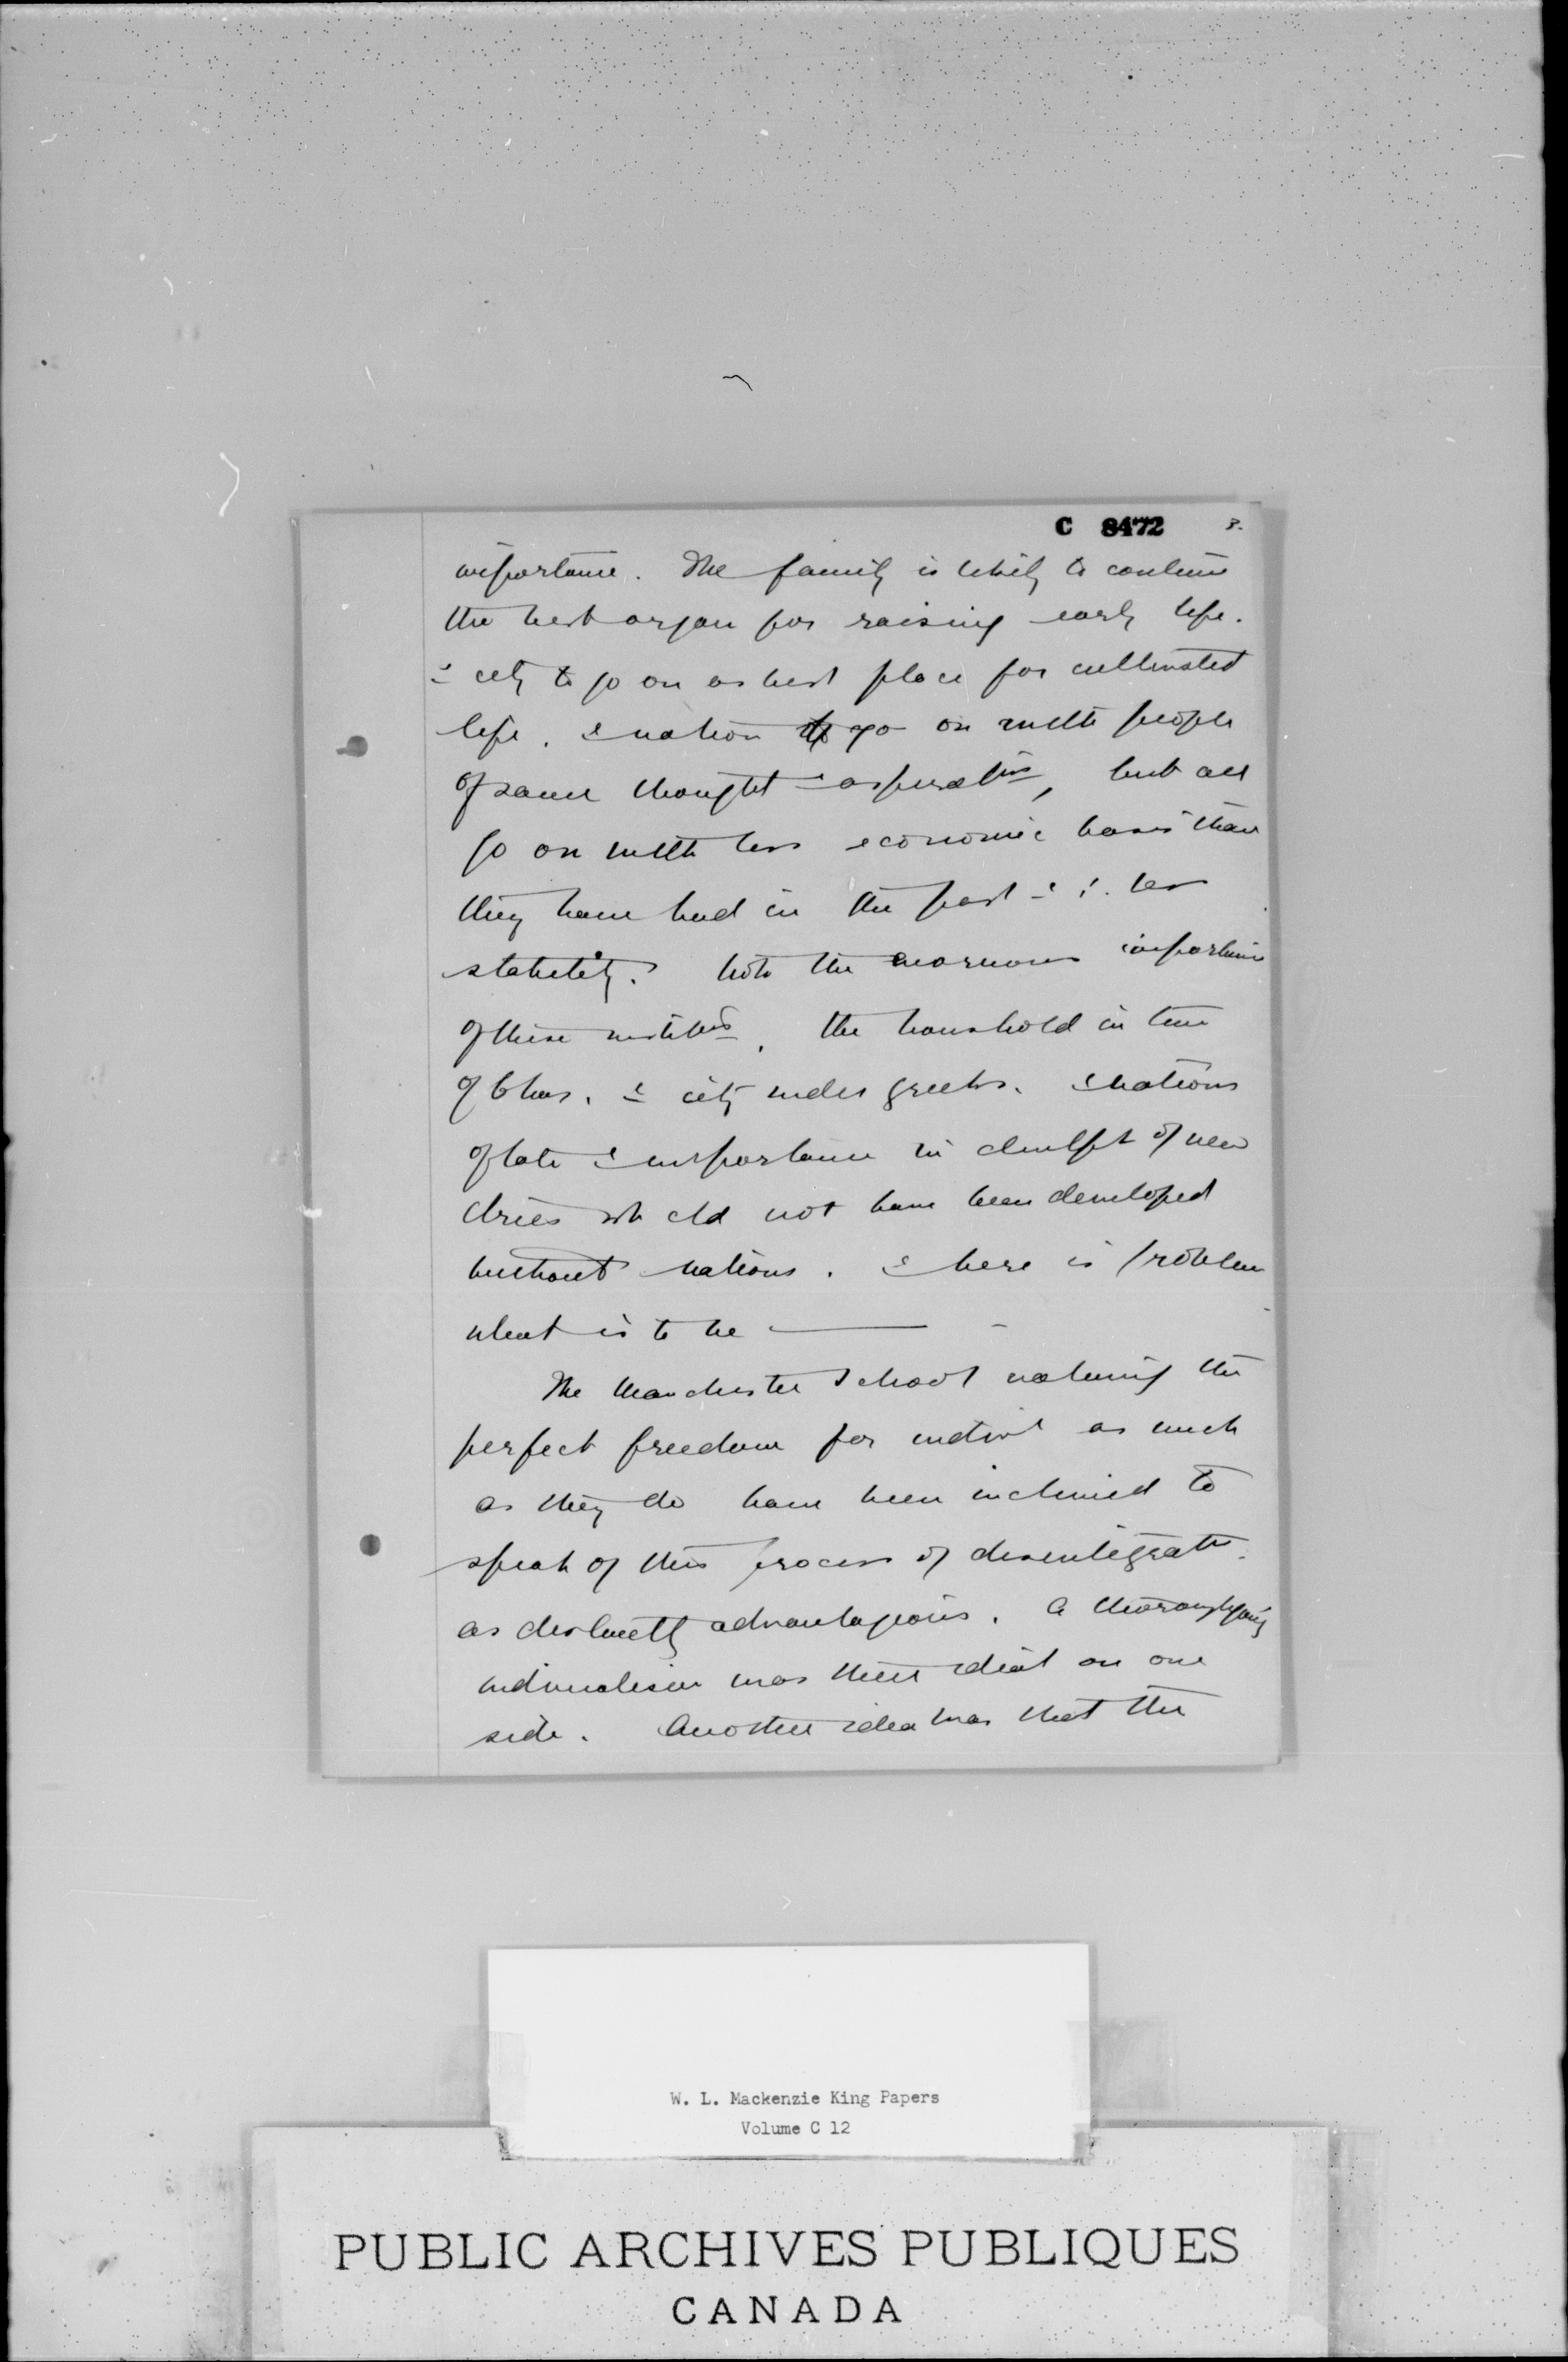 C 8472 8.
importance. The family is likely to continue
the best organ for raising early life.
& city to go on as best place for cultivated
life. & nation to go on with people
of same thought & aspiratns, but all
go on with less economic basis than
they have had in the past & ∴ less
stability. Note the enormous importance
of these institns. the household in time
of Chas. & city under Greeks. & nations
of late & importance in develpt of new
wh cld not have been developed
without nations. & here is problem
what is to be ——— -
The Manchester School valuing the
perfect freedom for indivl as much
as they do have been inclined to
speak of this process of disintegratn
as distinctly advantageous. A thoroughgoing
individualism was their ideal on one
side. Another idea was that the
W. L. Mackenzie King Papers
Volume C 12
PUBLIC ARCHIVES PUBLIQUES
CANADA